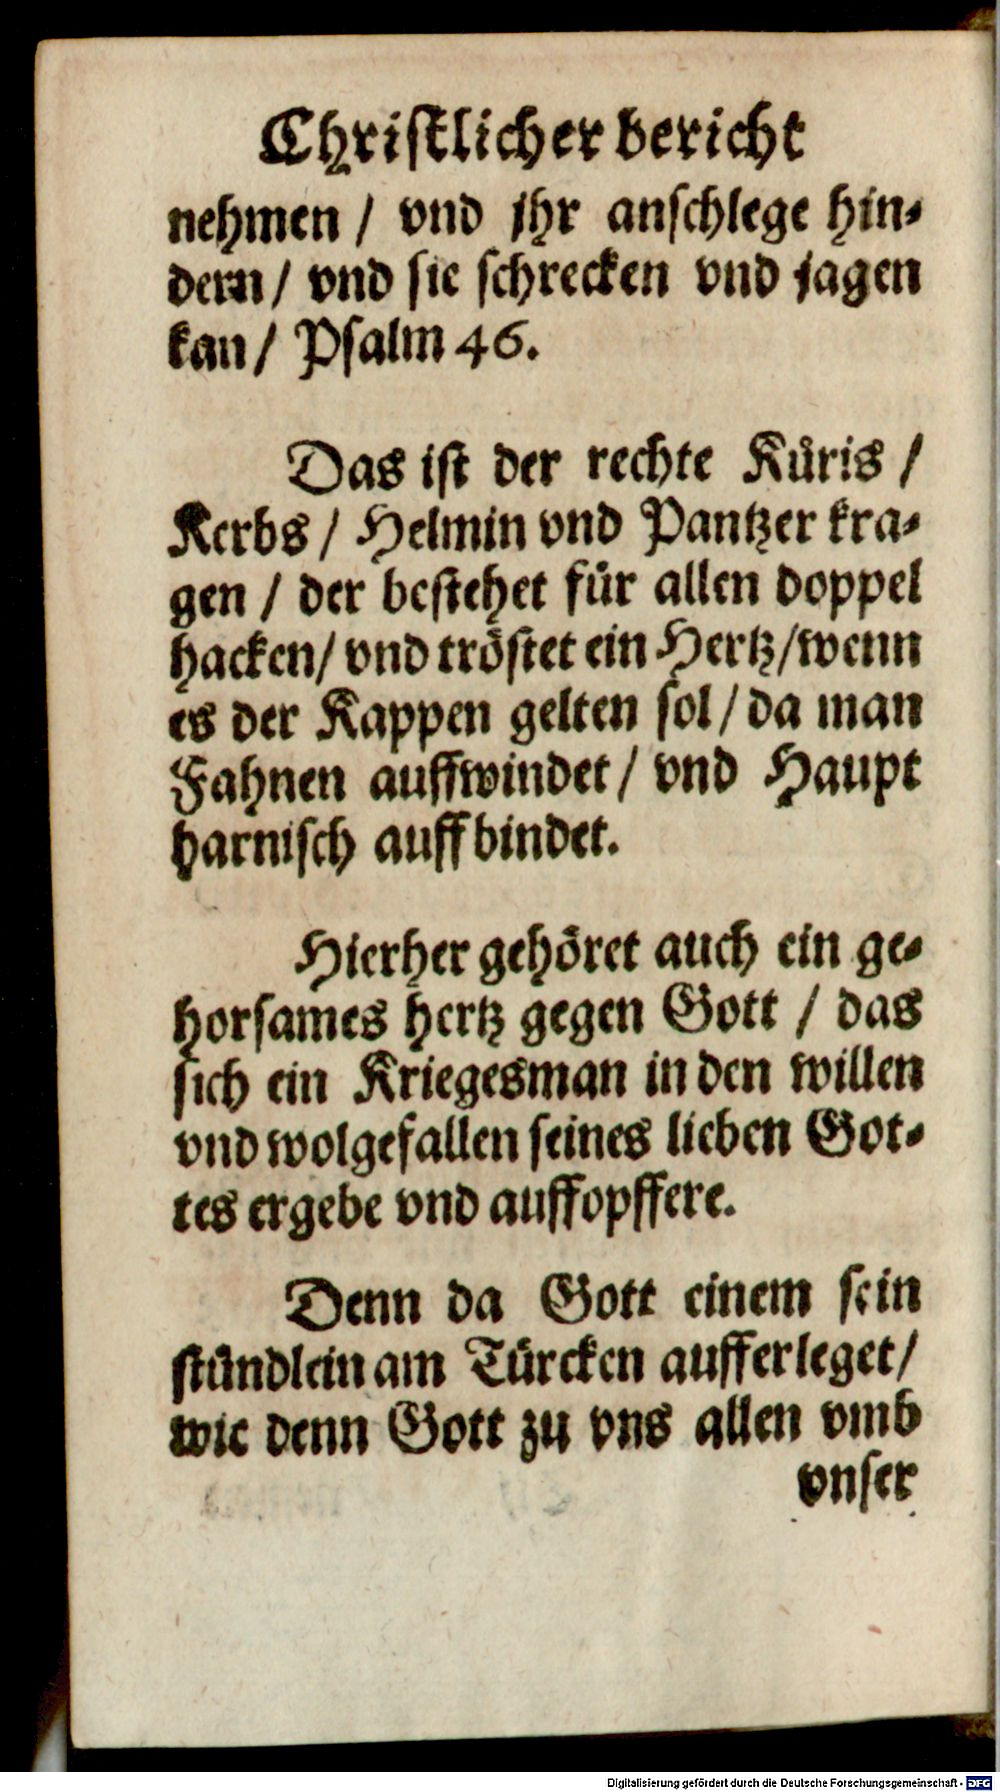 Christlicher bericht
nehmen / vnd jhr anschlege hin-
dern / vnd sie schrecken vnd jagen
kan / Psalm 46.
Das ist der rechte Küris /
Kerbs / Helmin vnd Pantzer kra-
gen / der bestehet für allen doppel
hacken / vnd tröstet ein Hertz / wenn
es der Kappen gelten sol / da man
Fahnen auffwindet / vnd Haupt
harnisch auffbindet.
Hierher gehöret auch ein ge-
horsames hertz gegen Gott / das
sich ein Kriegesman in den willen
vnd wolgefallen seines lieben Got-
tes ergebe vnd auffopffere.
Denn da Gott einem sein
stündlein am Türcken aufferleget /
wie denn Gott zu vns allen vmb
vnser
Digitalisierung gefördert durch die Deutsche Forschungsgemeinschaft - DFG